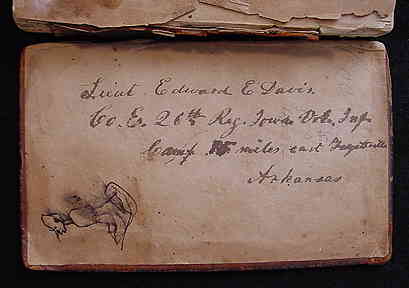 Lieut Edward E Davis
Co. E. 26th Reg. Iowa Vols. Inf
Camp miles east Fayetteville
Arkansas